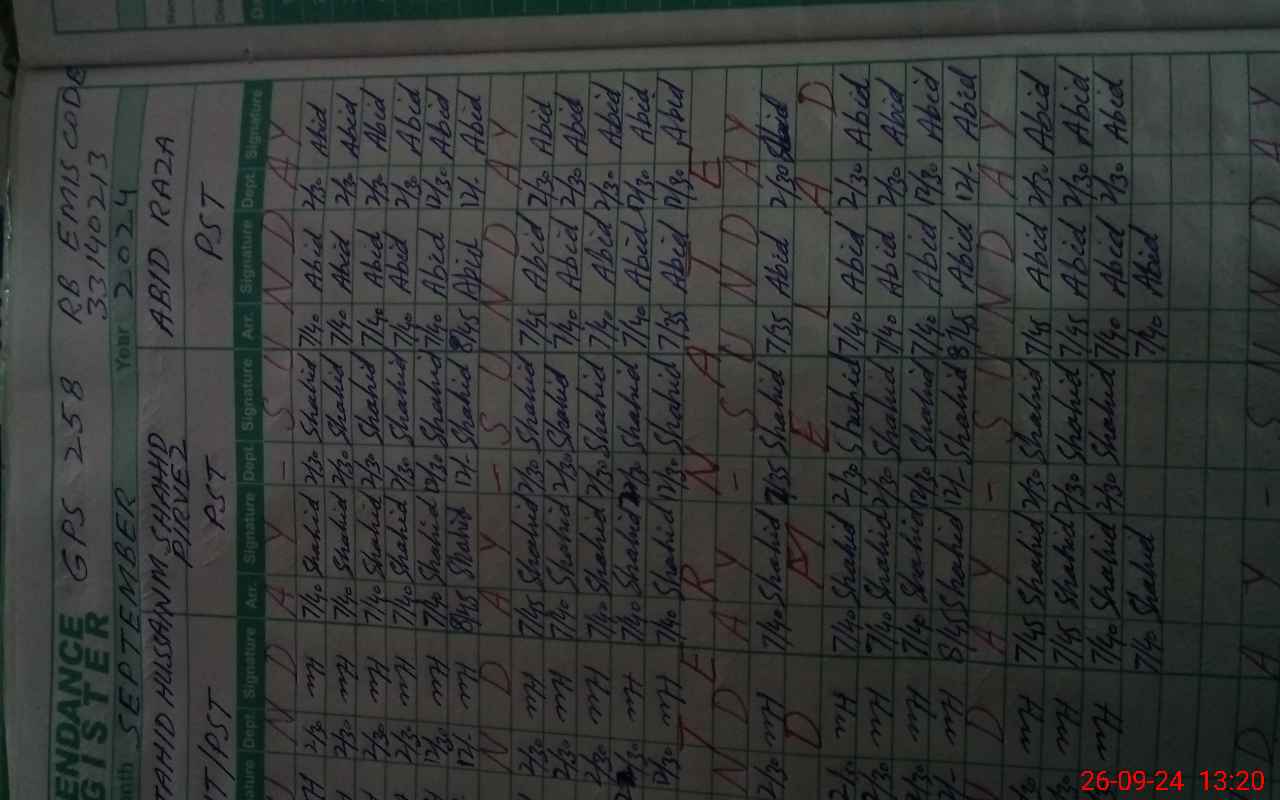 ENDANCE GPS 258 RB EMIS CODE
GISTER 33140213
nth SEPTEMBER Year 2024
TAHID HUSSAIN M SHAHID ABID RAZA
PIRVEZ
T/PST PST PST
ature Dept. Signature Arr. Signature Dept. Signature Arr. Signature Dept. Signature
U N D A Y - S U N D A Y
mH 2/30 mH 7/40 Shahid 2/30 Shahid 7/40 Abid 2/30 Abid
2/30 mH 7/40 Shahid 2/30 Shahid 7/40 Abid 2/30 Abid
2/30 mH 7/40 Shahid 2/30 Shahid 7/40 Abid 2/30 Abid
2/30 mH 7/40 Shahid 2/30 Shahid 7/40 Abid 2/30 Abid
12/30 mH 7/40 Shahid 12/30 Shahid 7/40 Abid 12/30 Abid
12/- mH 8/45 Shahid 12/- Shahid 8/45 Abid 12/- Abid
N D A Y - S U N D A Y
2/30 mH 7/45 Shahid 2/30 Shahid 7/45 Abid 2/30 Abid
2/30 mH 7/40 Shahid 2/30 Shahid 7/40 Abid 2/30 Abid
2/30 mH 7/40 Shahid 2/30 Shahid 7/40 Abid 2/30 Abid
mH 7/40 Shahid Shahid 7/40 Abid 12/30 Abid
12/30 mH 7/40 Shahid 12/30 Shahid 7/35 Abid 12/30 Abid
N D A Y - S U N D A Y
2/30 mH 7/40 Shahid 2/35 Shahid 7/35 Abid 2/30 Abid
D M E L A D
2/30 mH 7/40 Shahid 2/30 Shahid 7/40 Abid 2/30 Abid
2/30 mH 7/40 Shahid 2/30 Shahid 7/40 Abid 2/30 Abid
12/30 mH 7/40 Shahid 12/30 Shahid 7/40 Abid 12/30 Abid
12/- mH 8/45 Shahid 12/- Shahid 8/45 Abid 12/- Abid
D A Y - S U N D A Y
mH 7/45 Shahid 2/30 Shahid 7/45 Abid 2/30 Abid
mH 7/45 Shahid 2/30 Shahid 7/45 Abid 2/30 Abid
mH 7/40 Shahid 2/30 Shahid 7/40 Abid 2/30 Abid
7/40 Shahid 7/40 Abid
D A Y - S U N D A Y
26-09-24 13:20